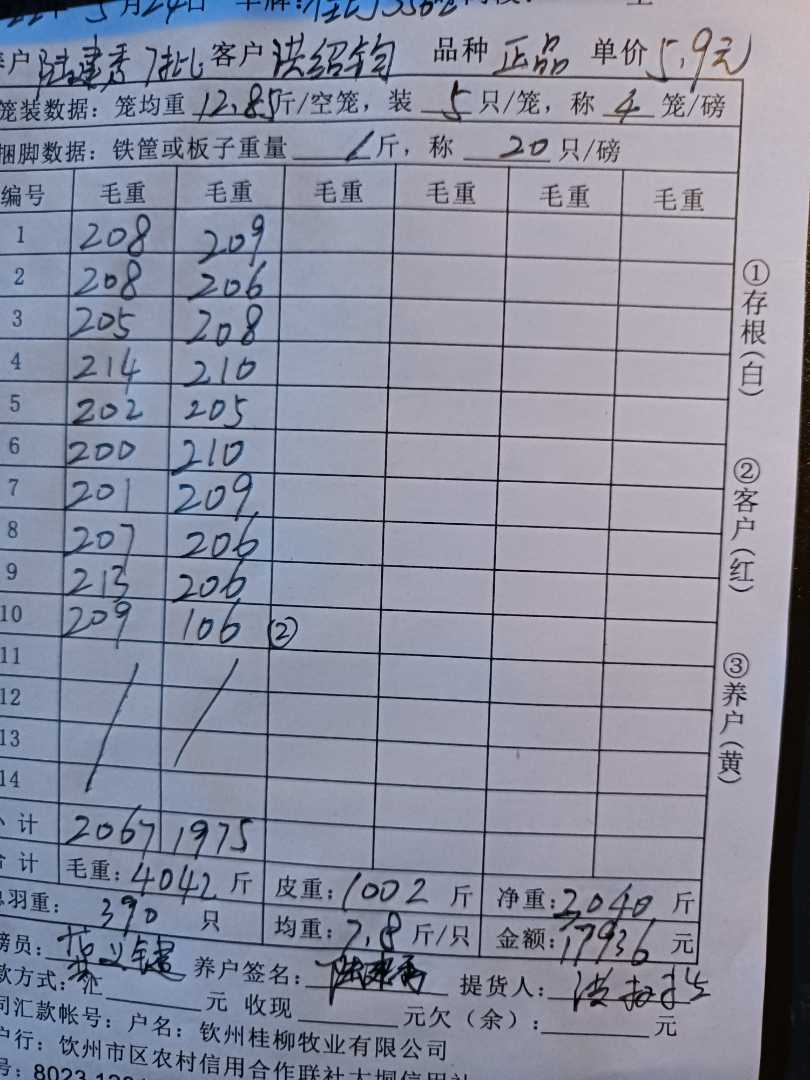 5月24日 车牌:
养户 陆建秀 7批 客户 洪绍钧 品种 正品 单价 5.9元
笼装数据: 笼均重 12.85 斤/空笼, 装 5 只/笼, 称 4 笼/磅
捆脚数据: 铁筐或板子重量 / 斤, 称 20 只/磅
编号 毛重 毛重 毛重 毛重 毛重 毛重
1 208 209
2 208 206
3 205 208
4 214 210
5 202 205
6 200 210
7 201 209
8 207 206
9 213 206
10 209 106 (2)
11
12
13
14
小计 2067 1975
合计 毛重: 4042 斤 皮重: 1002 斤 净重: 3040 斤
总羽重: 390 只 均重: 7.8 斤/只 金额: 17936 元
磅员: 养户签名: 陆建秀 提货人:
款方式: 汇 元 收现 元欠(余): 元
司汇款帐号: 户名: 钦州桂柳牧业有限公司
户行: 钦州市区农村信用合作联社大垌信用社
号: 8023
①存根(白)
②客户(红)
③养户(黄)